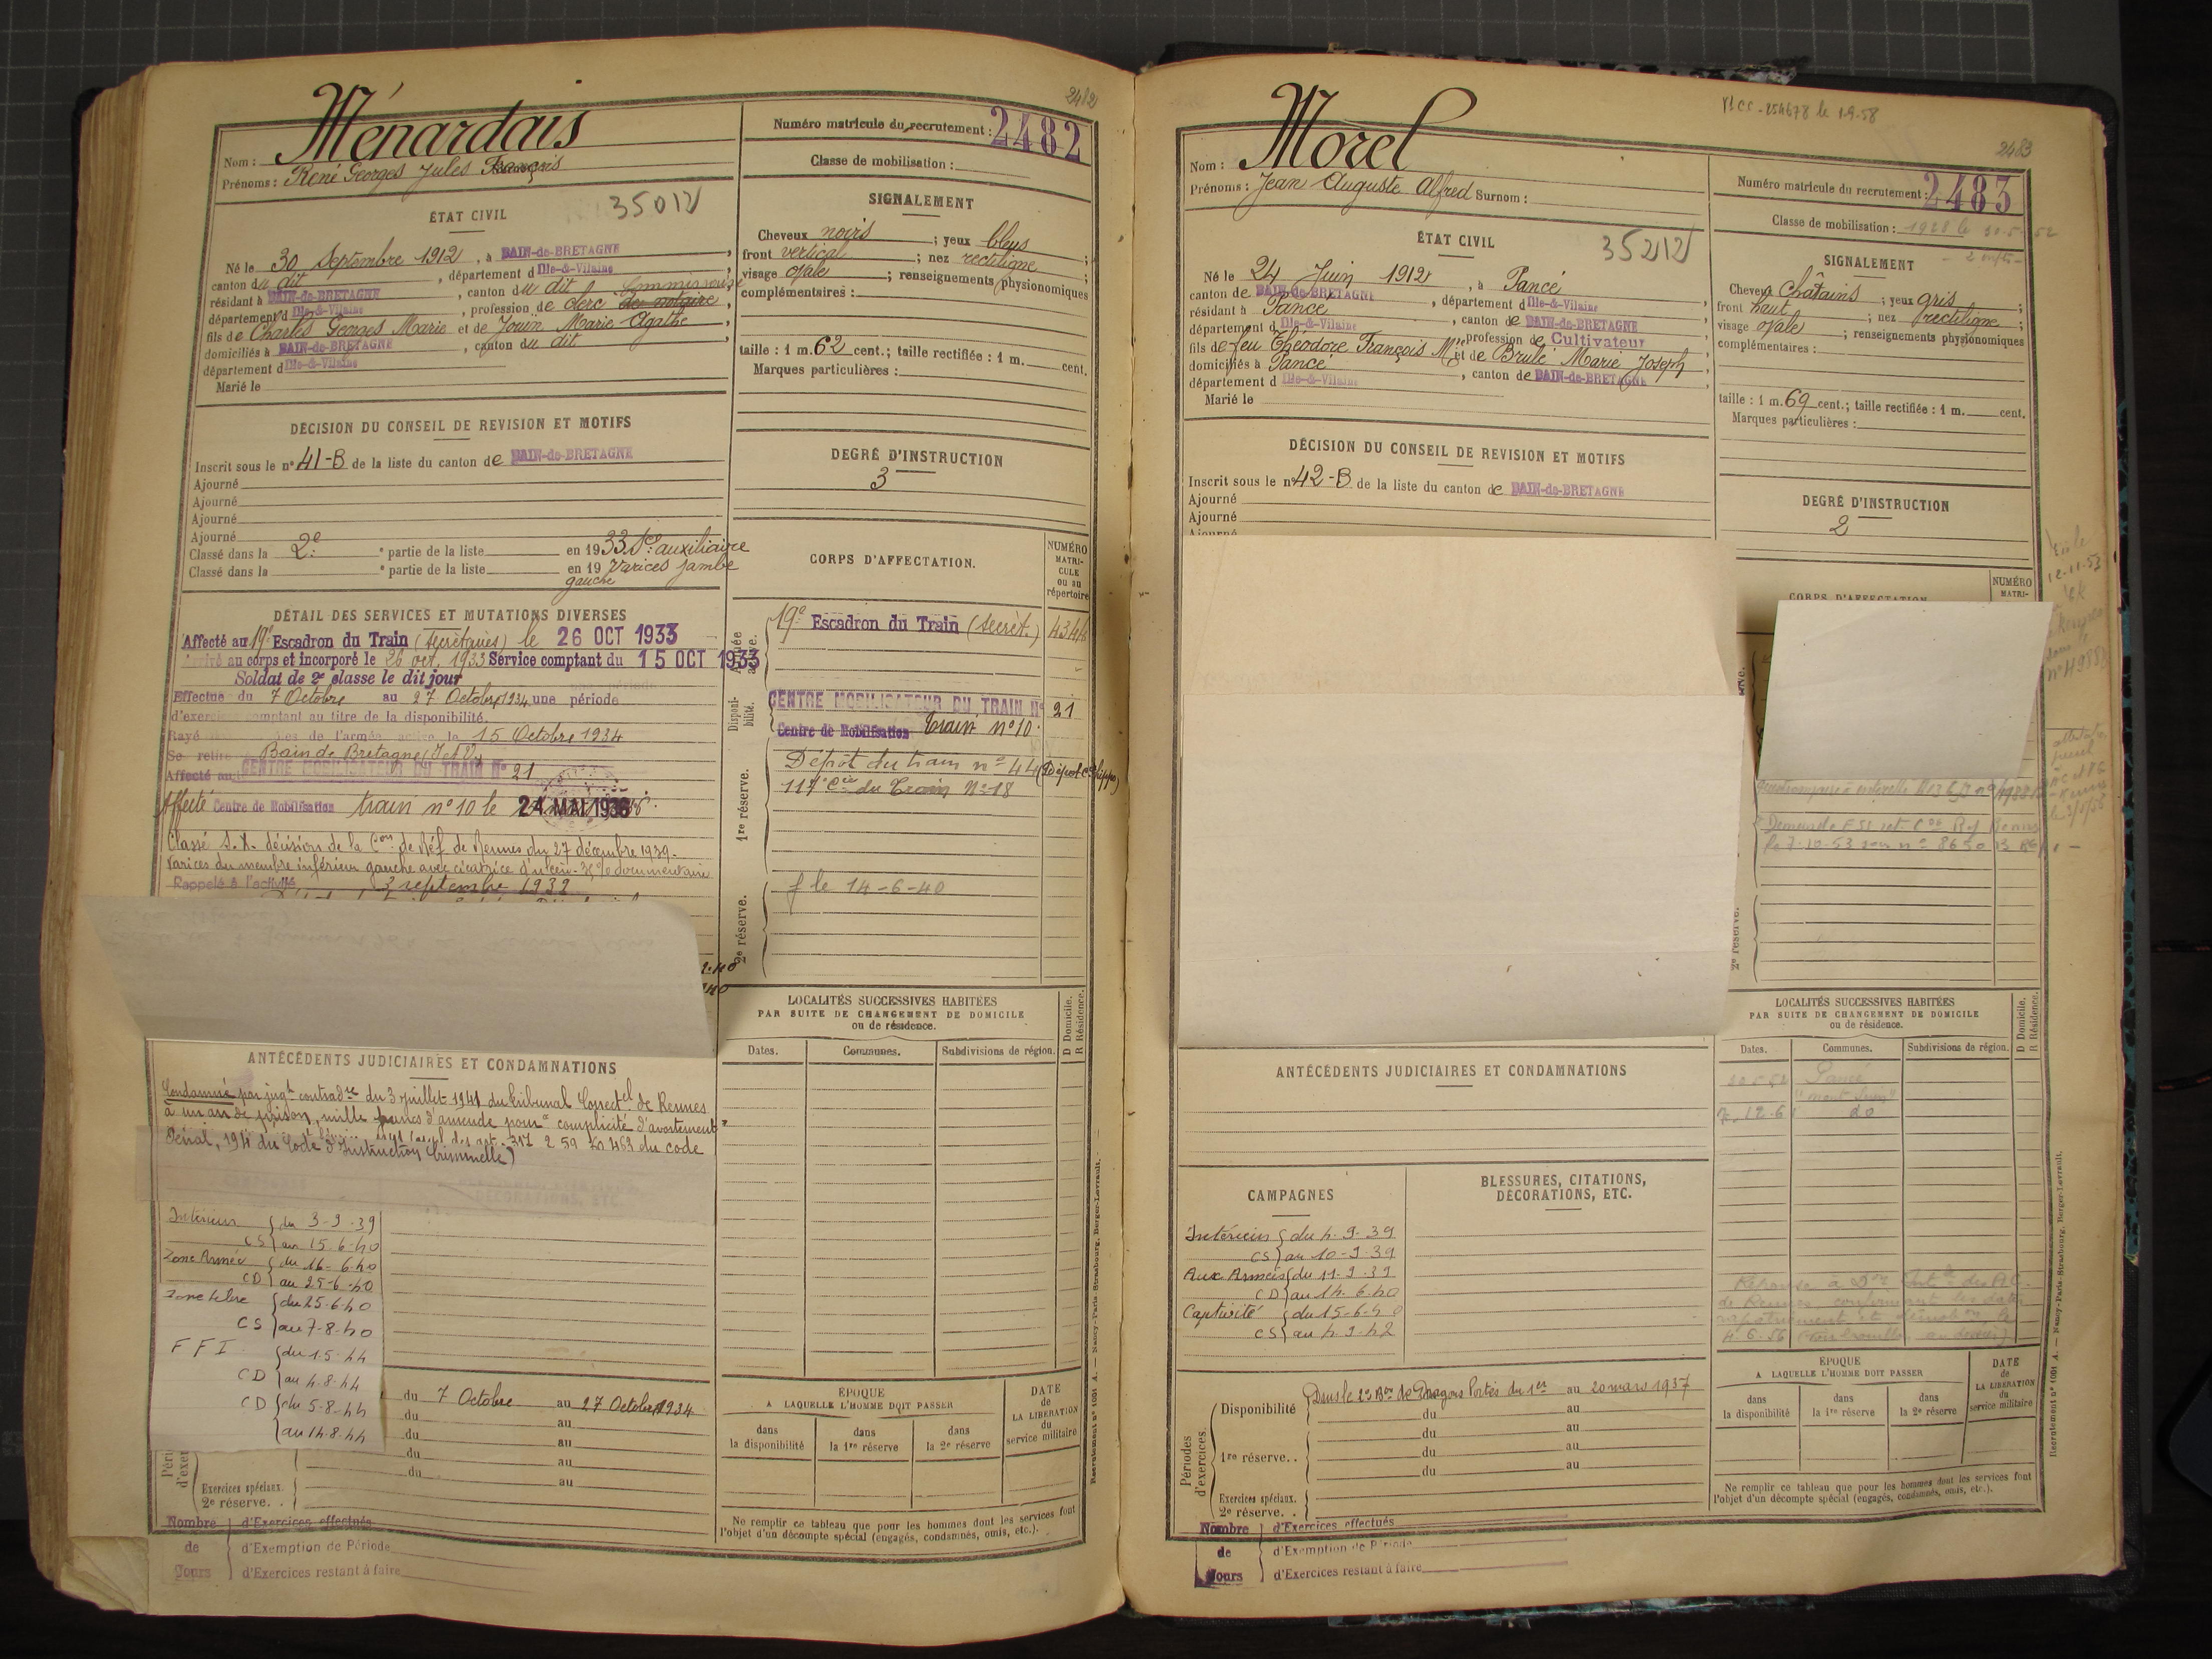 2482
Ménardais
Nom :
Prénoms : René Georges Jules François
Numéro matricule du recrutement : 2482
Classe de mobilisation :
ÉTAT CIVIL
35012
Né le 30 Septembre 1912, à BAIN-de-BRETAGNE,
canton du dit, département d Ille-&-Vilaine,
résidant à BAIN-de-BRETAGNE, canton du dit
département d Ille-&-Vilaine, profession de clerc de notaire,
fils de Charles Georges Marie et de Jouin Marie Agathe,
domiciliés à BAIN-de-BRETAGNE, canton du dit,
département d Ille-&-Vilaine
Marié le
SIGNALEMENT
Cheveux noirs ; yeux bleus ;
front vertical ; nez rectiligne ;
visage ovale ; renseignements physionomiques
complémentaires :
taille : 1 m. 62 cent.; taille rectifiée : 1 m. cent.
Marques particulières :
DÉCISION DU CONSEIL DE REVISION ET MOTIFS
Inscrit sous le n° 41-B de la liste du canton de BAIN-de-BRETAGNE
Ajourné
Ajourné
Ajourné
Ajourné
Classé dans la 2e partie de la liste en 1933. Sce auxiliaire
Classé dans la e partie de la liste en 19 Varices jambe
gauche
DEGRÉ D'INSTRUCTION
3
DÉTAIL DES SERVICES ET MUTATIONS DIVERSES
Affecté au 19e Escadron du Train (secrétaires) le 26 OCT 1933
Arrivé au corps et incorporé le 26 oct. 1933 Service comptant du 15 OCT 1933
Soldat de 2e classe le dit jour
Effectue du 7 Octobre au 27 Octobre 1934 une période
d'exercice comptant au titre de la disponibilité.
Rayé des contrôles de l'armée active le 15 Octobre 1934
Se retire Bain de Bretagne (I et V)
Affecté au CENTRE MOBILISATEUR DU TRAIN N° 21
Affecté Centre de Mobilisation train n° 10 le 24 MAI 1936
Classé S.X. décision de la Con de Réf de Rennes du 27 décembre 1939.
Varices du membre inférieur gauche avec cicatrice d'ulcère
Rappelé à l'activité 3 septembre 1939
CORPS D'AFFECTATION.
NUMÉRO
MATRI-
CULE
ou au
répertoire
Armée
active.
19e Escadron du Train (secrét.)
Disponi-
bilité.
CENTRE MOBILISATEUR DU TRAIN N° 21
Centre de Mobilisation Train n° 10
1re réserve.
Dépôt du train n° 44
117e Cie du Train N° 18
f le 14-6-40
2e réserve.
LOCALITÉS SUCCESSIVES HABITÉES
PAR SUITE DE CHANGEMENT DE DOMICILE
ou de résidence.
D Domicile.
R Résidence.
Dates.
Communes.
Subdivisions de région.
ANTÉCÉDENTS JUDICIAIRES ET CONDAMNATIONS
Condamné par jugt contradre du 3 juillet 1941 du tribunal Correctel de Rennes
à un an de prison, mille francs d'amende pour complicité d'avortement
Pénal, 194 du Code d'Instruction Criminelle)
317 2 59 60 463 du code
Intérieur du 3-9-39
CS au 15-6-40
Zone Armée du 16-6-40
CD au 25-6-40
Zone Libre du 25-6-40
CS au 7-8-40
F F I. du 1.5.44
CD au 4.8.44
CD du 5-8-44
au 14.8.44
du 7 Octobre au 27 Octobre 1934
du au
du au
du au
du au
Exercices spéciaux.
2e réserve. .
Nombre
de
Jours
d'Exercices effectués
d'Exemption de Période
d'Exercices restant à faire
ÉPOQUE
A LAQUELLE L'HOMME DOIT PASSER
DATE
de
LA LIBÉRATION
du
service militaire
dans
la disponibilité
dans
la 1re réserve
dans
la 2e réserve
Ne remplir ce tableau que pour les hommes dont les services font
l'objet d'un décompte spécial (engagés, condamnés, omis, etc.).
Recrutement n° 1001 A. — Nancy-Paris-Strasbourg, Berger-Levrault.
le 1-9-58
2483
Morel
Nom :
Prénoms : Jean Auguste Alfred Surnom :
Numéro matricule du recrutement : 2483
Classe de mobilisation :
ÉTAT CIVIL
35212
Né le 24 Juin 1912, à Pancé
canton de BAIN-de-BRETAGNE, département d Ille-&-Vilaine
résidant à Pancé, canton de BAIN-de-BRETAGNE
département d Ille-&-Vilaine, profession de Cultivateur
fils de feu Théodore François Mie et de Brulé Marie Joseph
domiciliés à Pancé, canton de BAIN-de-BRETAGNE
département d Ille-&-Vilaine
Marié le
SIGNALEMENT
Cheveux Châtains ; yeux gris ;
front haut ; nez rectiligne ;
visage ovale ; renseignements physionomiques
complémentaires :
taille : 1 m. 69 cent.; taille rectifiée : 1 m. cent.
Marques particulières :
DÉCISION DU CONSEIL DE REVISION ET MOTIFS
Inscrit sous le n° 42-B de la liste du canton de BAIN-de-BRETAGNE
Ajourné
Ajourné
Ajourné
DEGRÉ D'INSTRUCTION
2
CORPS D'AFFECTATION
NUMÉRO
MATRI-
2e réserve.
LOCALITÉS SUCCESSIVES HABITÉES
PAR SUITE DE CHANGEMENT DE DOMICILE
ou de résidence.
D Domicile.
R Résidence.
Dates.
Communes.
Subdivisions de région.
Pancé
ANTÉCÉDENTS JUDICIAIRES ET CONDAMNATIONS
CAMPAGNES
BLESSURES, CITATIONS,
DÉCORATIONS, ETC.
Intérieur du 4-9-39
CS au 10-9-39
Aux Armées du 11-9-39
CD au 14-6-40
Captivité du 15-6-40
CS au 4-9-42
Périodes
d'exercices.
Disponibilité Dans le 2e Bon de Dragons Portés du 1er au 20 mars 1937
du au
du au
1re réserve. . du au
du au
Exercices spéciaux.
2e réserve. .
Nombre
de
Jours
d'Exercices effectués
d'Exemption de Période
d'Exercices restant à faire
ÉPOQUE
A LAQUELLE L'HOMME DOIT PASSER
DATE
de
LA LIBÉRATION
du
service militaire
dans
la disponibilité
dans
la 1re réserve
dans
la 2e réserve
Ne remplir ce tableau que pour les hommes dont les services font
l'objet d'un décompte spécial (engagés, condamnés, omis, etc.).
Recrutement n° 1001 A. — Nancy-Paris-Strasbourg, Berger-Levrault.